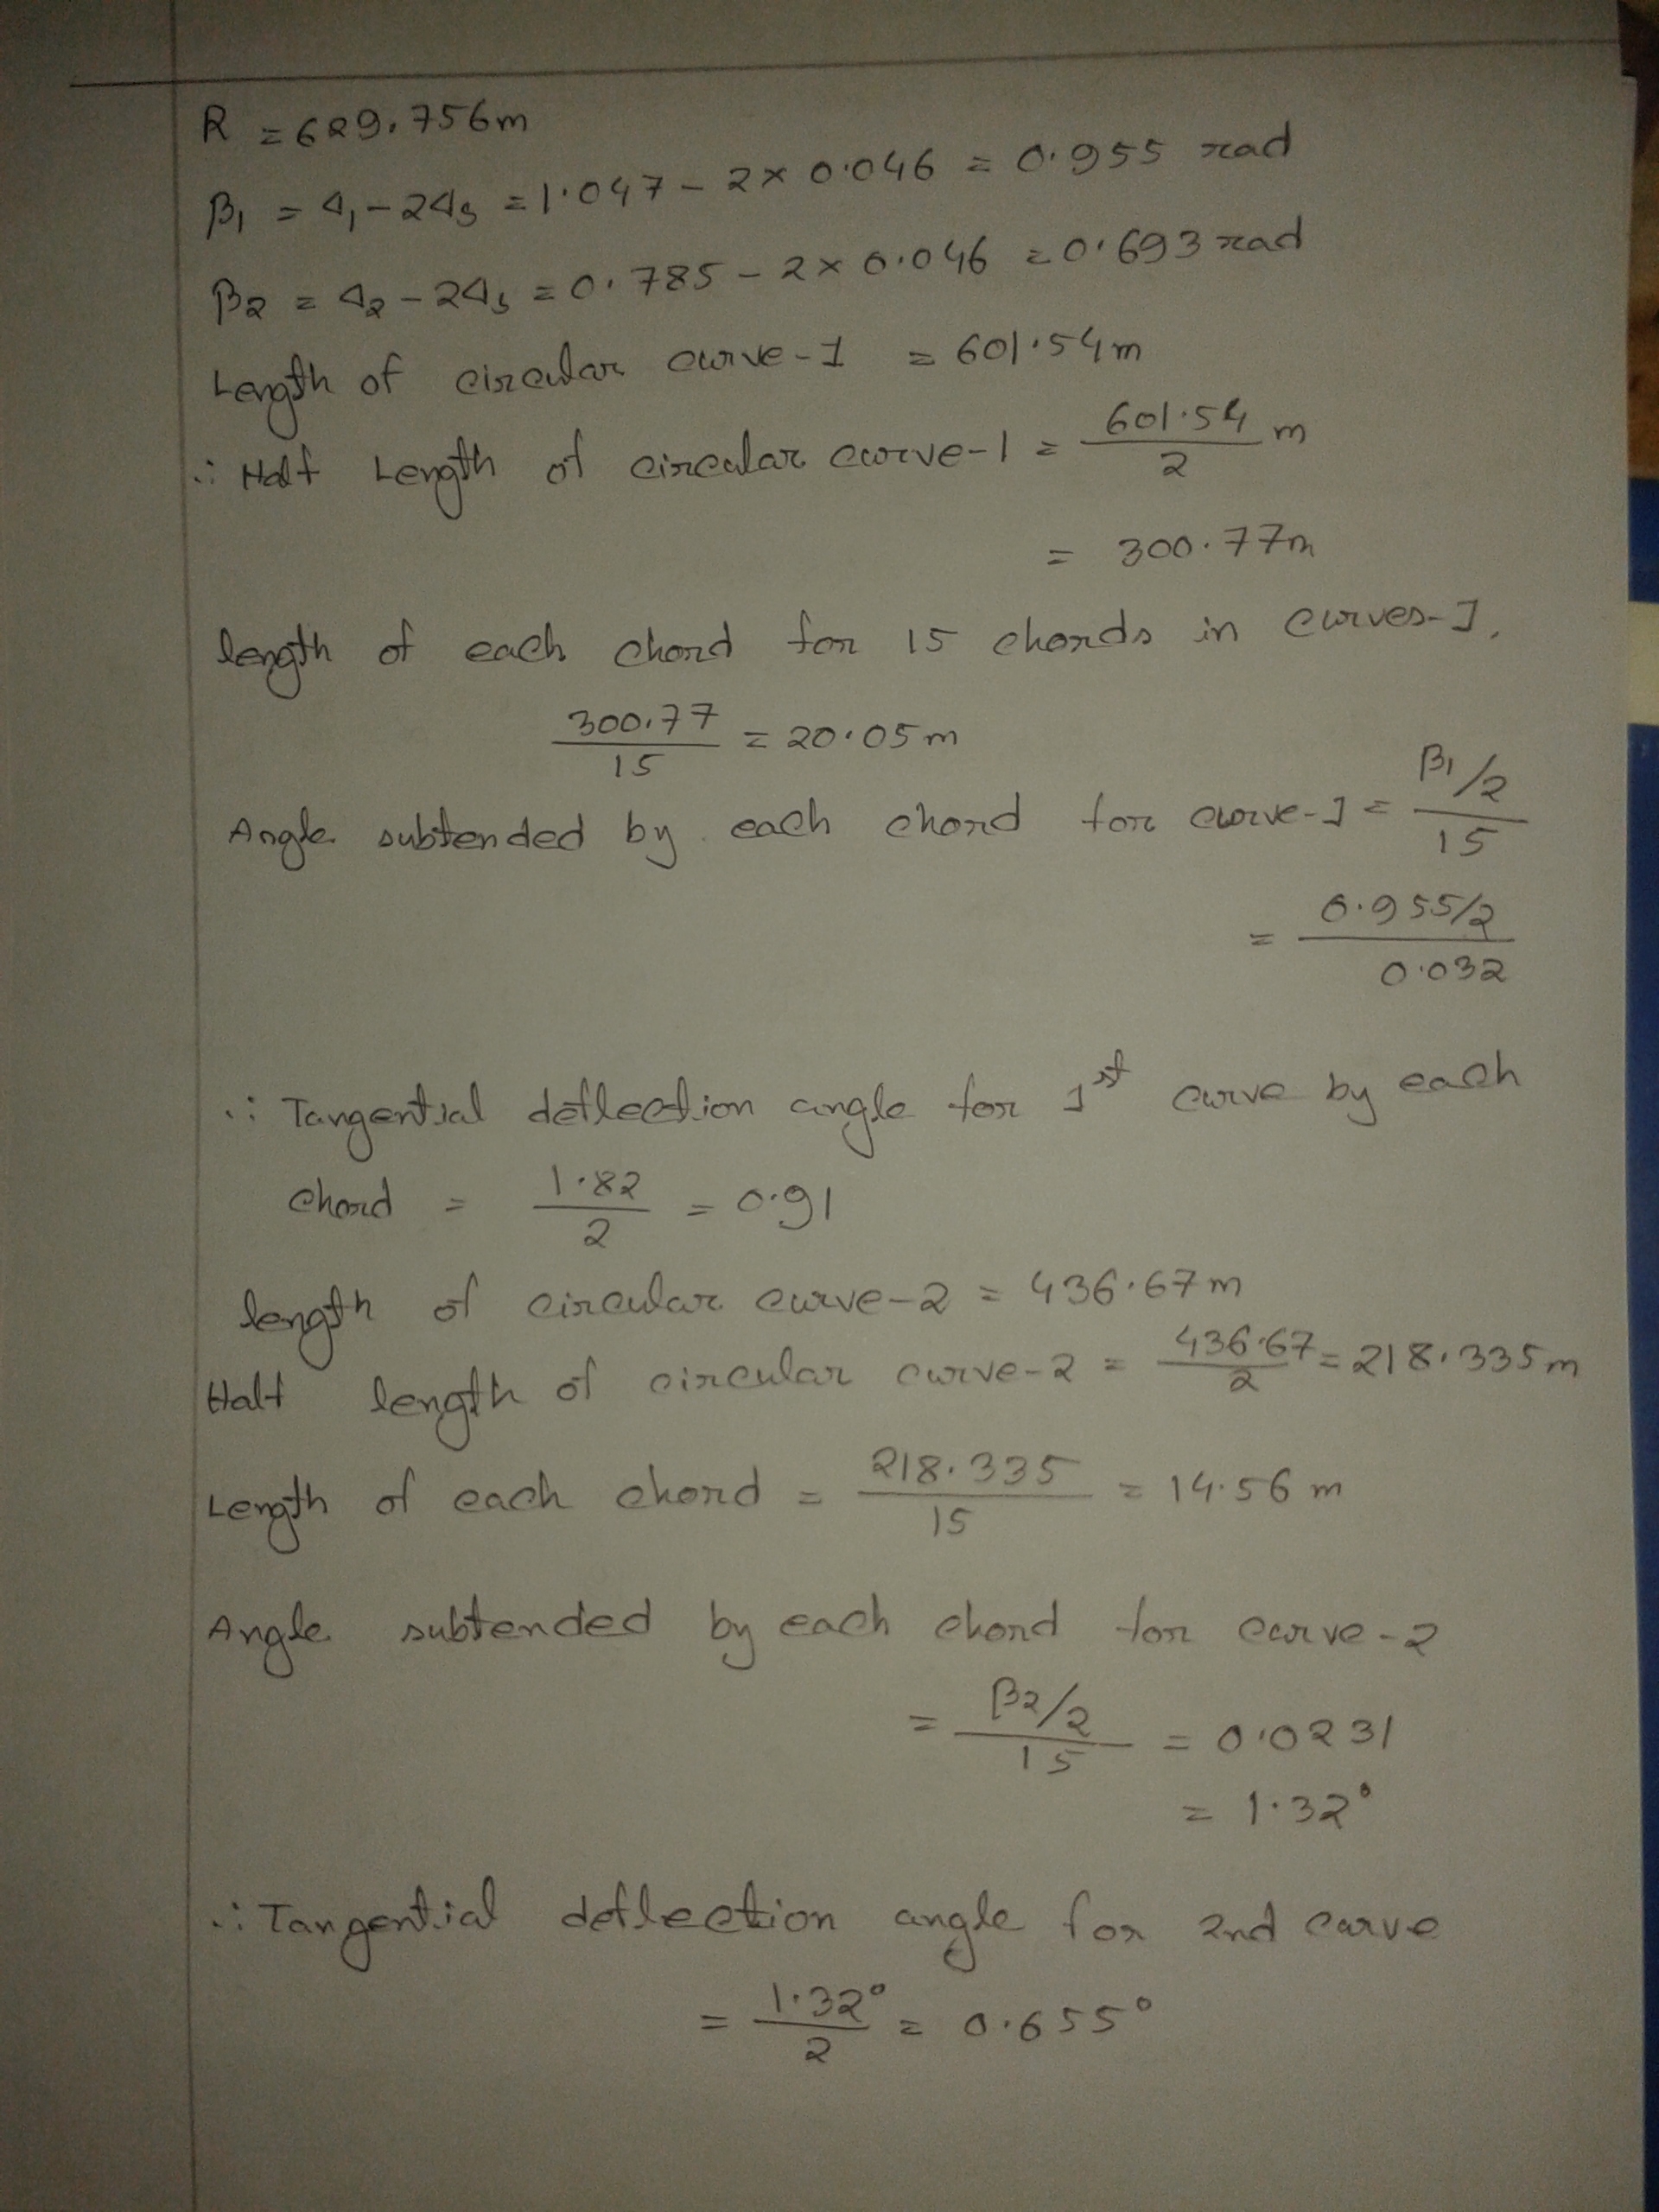 R = 629.756m
β₁ = Δ₁ - 2Δs = 1.047 - 2 × 0.046 = 0.955 rad
β₂ = Δ₂ - 2Δs = 0.785 - 2 × 0.046 = 0.693 rad
Length of circular curve-1 = 601.54m
∴ Half Length of circular curve-1 = 601.54/2 m
= 300.77m
length of each chord for 15 chords in curves-1.
300.77/15 = 20.05m
Angle subtended by each chord for curve-1 = (β₁/2)/15
= (0.955/2)/0.032
∴ Tangential deflection angle for 1st curve by each
chord = 1.82/2 = 0.91
length of circular curve-2 = 436.67m
Half length of circular curve-2 = 436.67/2 = 218.335m
Length of each chord = 218.335/15 = 14.56 m
Angle subtended by each chord for curve-2
= (β₂/2)/15 = 0.0231
= 1.32°
∴ Tangential deflection angle for 2nd curve
= 1.32°/2 = 0.655°